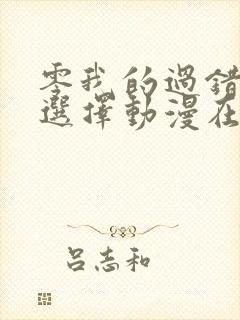 零我的過錯
選擇動漫在
呂志和